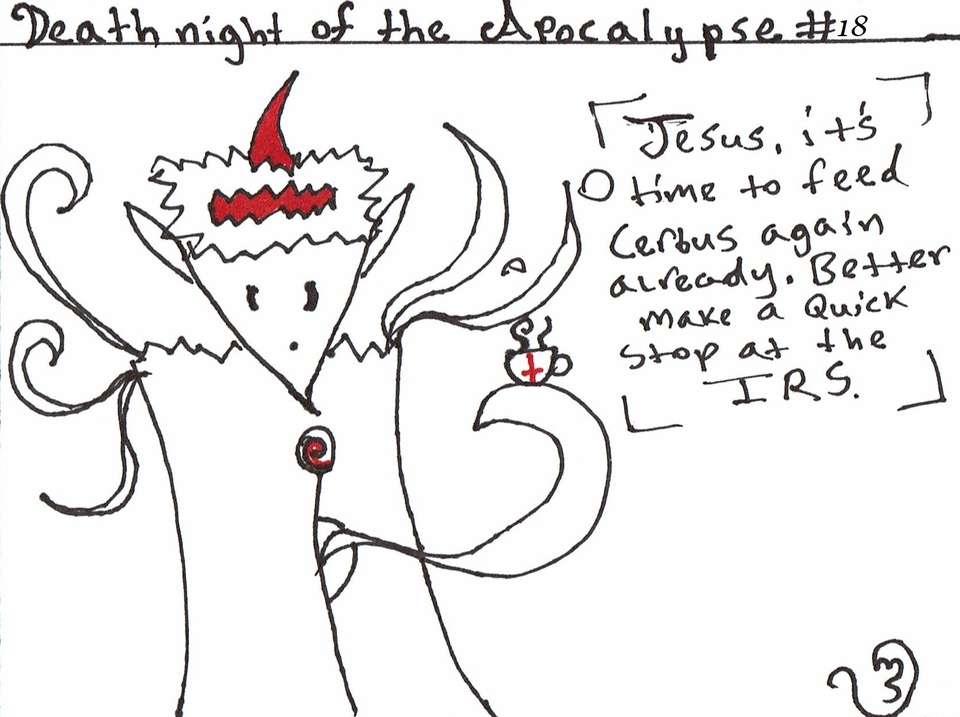 Death night of the Apocalypse #18
Jesus, it's
time to feed
Cerbus again
already. Better
make a Quick
stop at the
IRS.